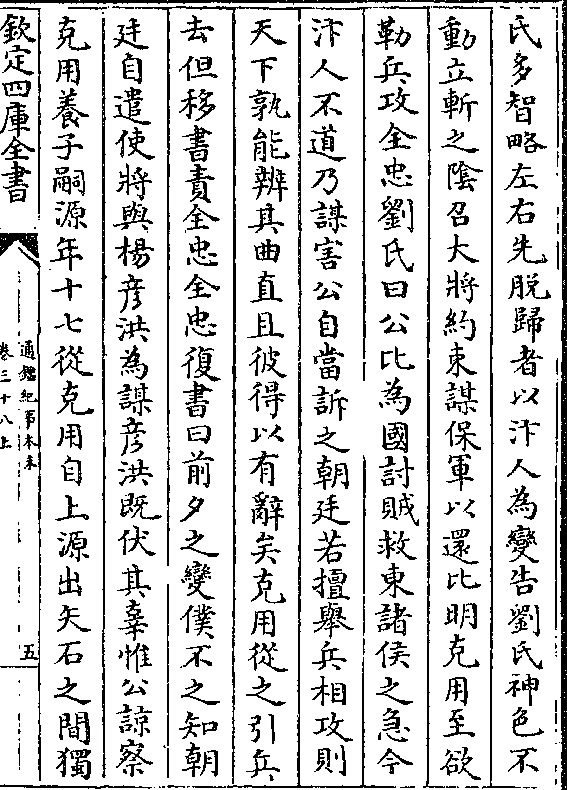 氏多智略左右先脱歸者以汴人為變告劉氏神色不
動立斬之隂召大將約束謀保軍以還比明克用至欲
勒兵攻全忠劉氏曰公比為國討賊救東諸侯之急今
汴人不道乃謀害公自當訴之朝廷若擅舉兵相攻則
天下孰能辨其曲直且彼得以有辭矣克用從之引兵
去但移書責全忠全忠復書曰前夕之變僕不之知朝
廷自遣使將與楊彦洪為謀彦洪既伏其辜惟公諒察
克用養子嗣源年十七從克用自上源出矢石之間獨
欽定四庫全書
通鑑紀事本末
卷三十八上
五